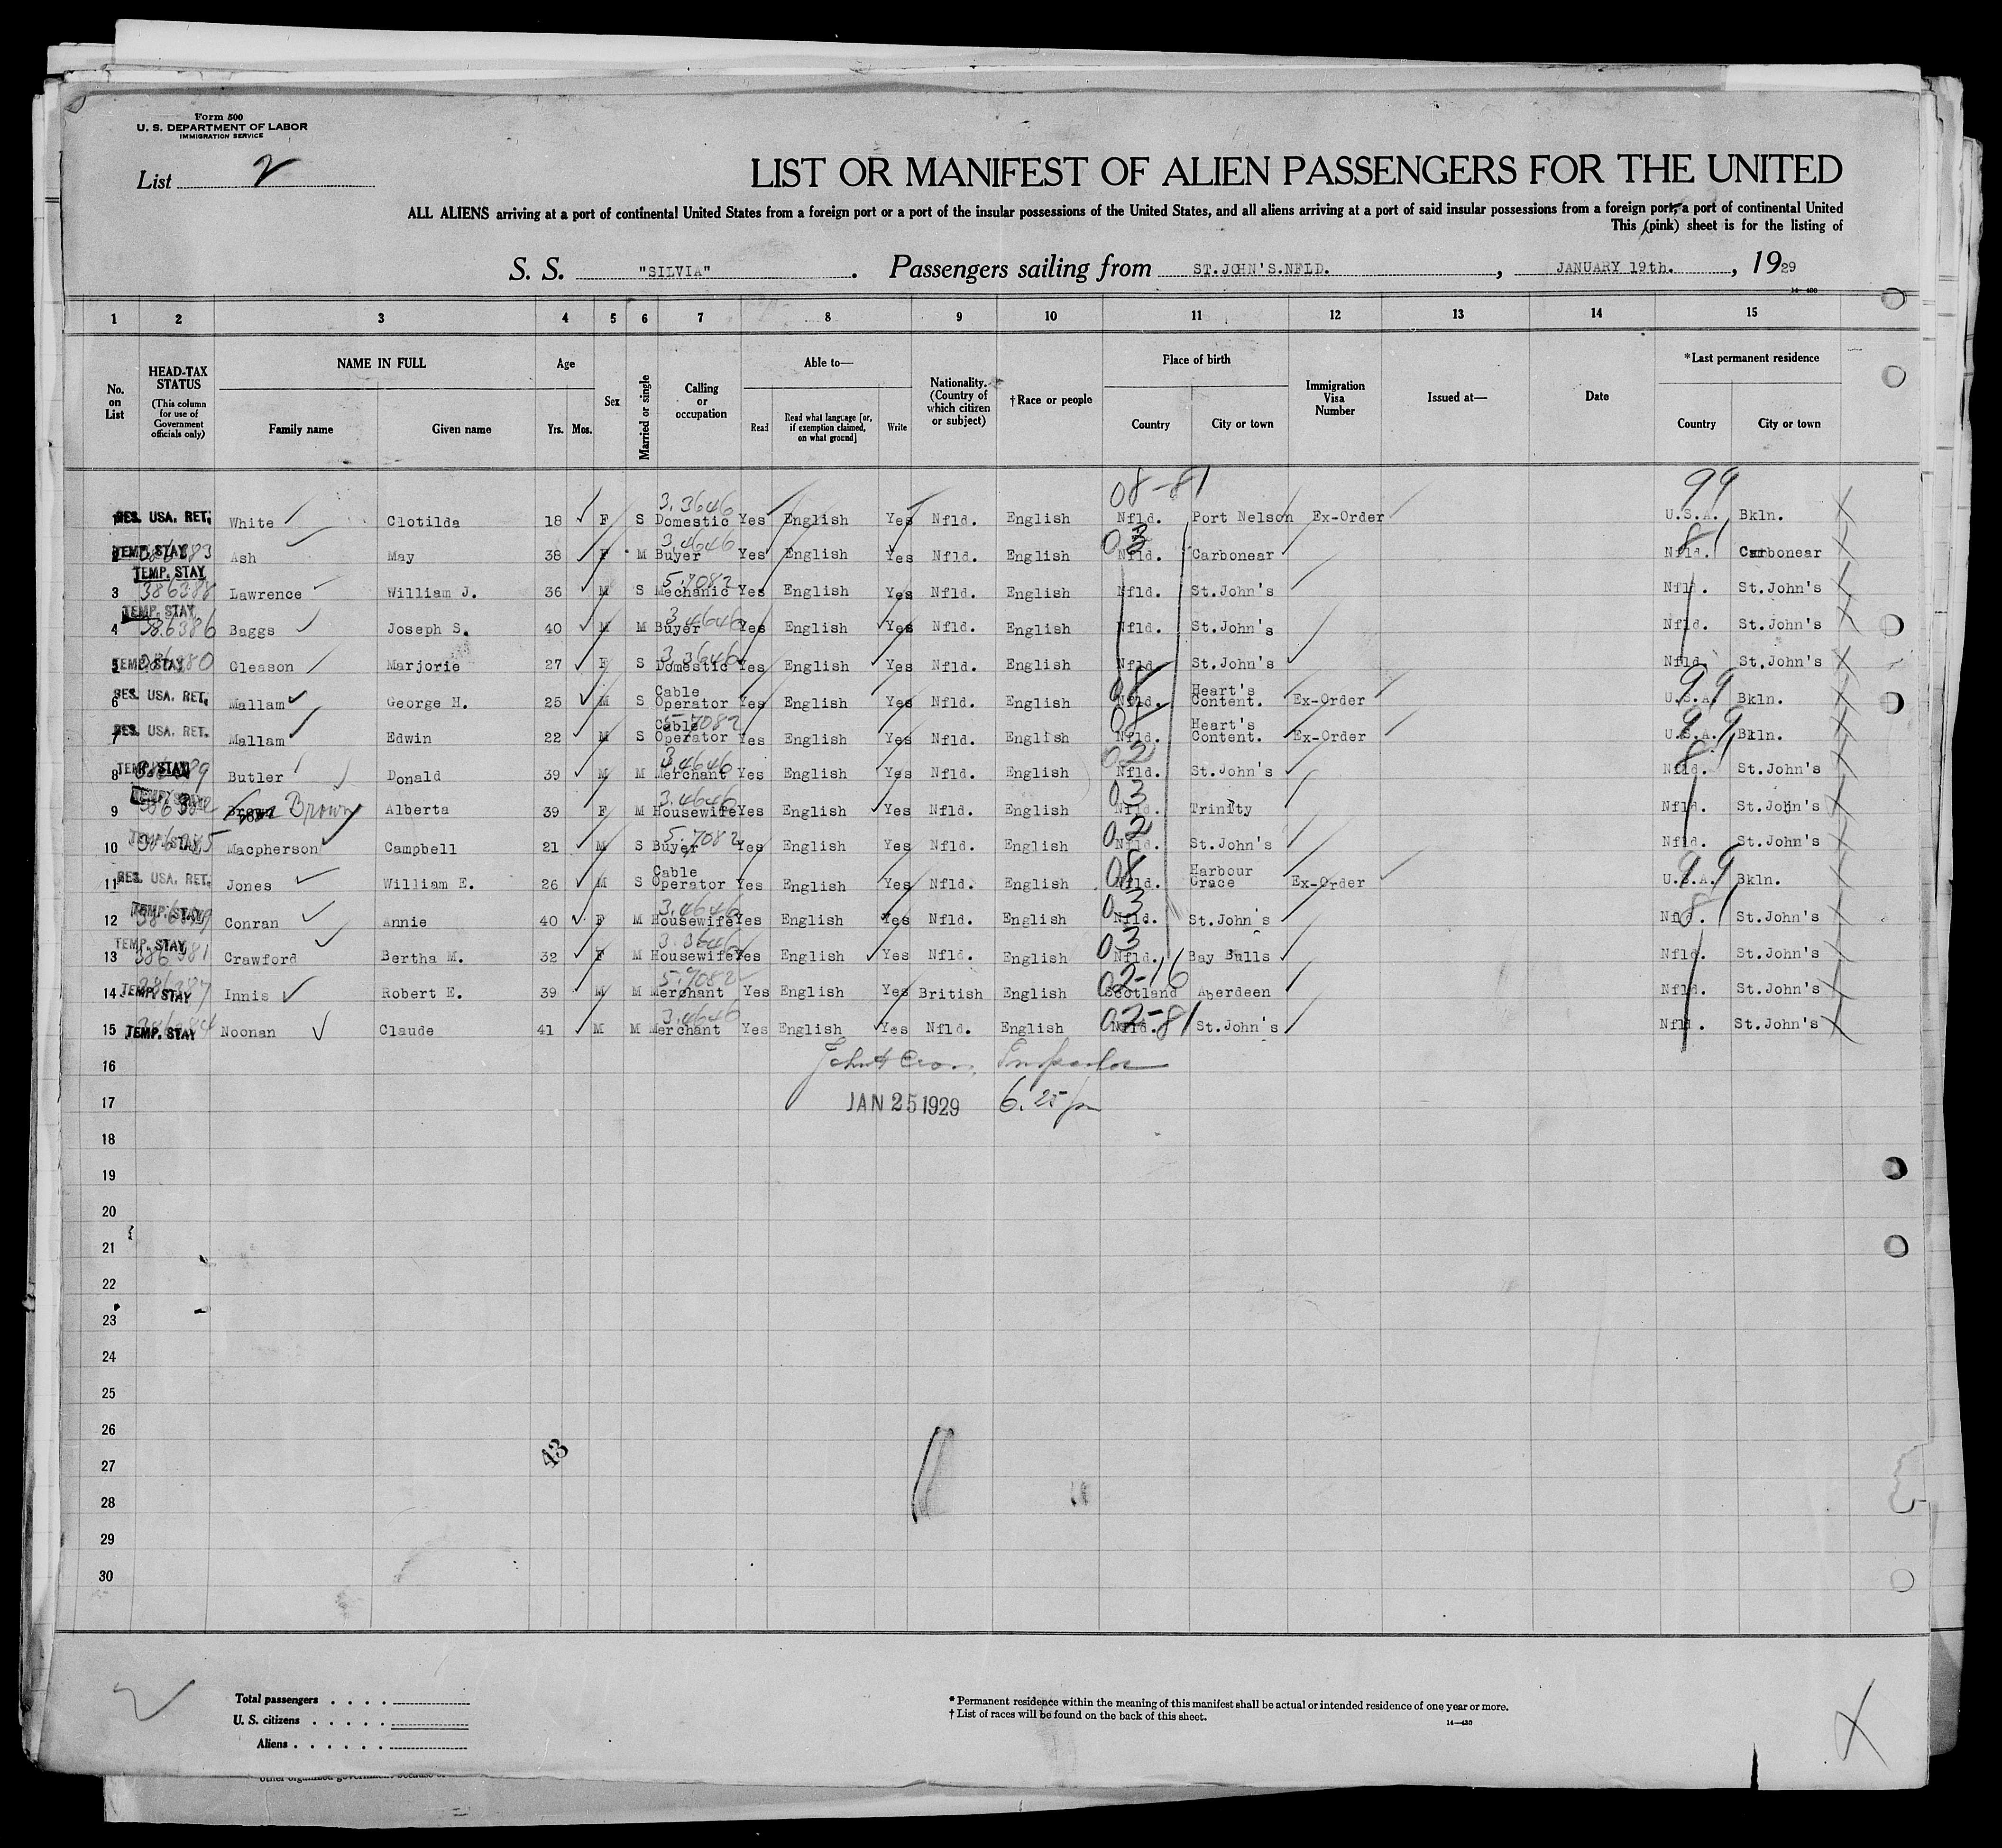 Form 500
U. S. DEPARTMENT OF LABOR
IMMIGRATION SERVICE
List 2
LIST OR MANIFEST OF ALIEN PASSENGERS FOR THE UNITED
ALL ALIENS arriving at a port of continental United States from a foreign port or a port of the insular possessions of the United States, and all aliens arriving at a port of said insular possessions from a foreign port, a port of continental United
This (pink) sheet is for the listing of
S. S. "SILVIA". Passengers sailing from ST.JOHN'S.NFLD., JANUARY 19th., 1929
14—430
1 2 3 4 5 6 7 8 9 10 11 12 13 14 15
No. on List
HEAD-TAX STATUS (This column for use of Government officials only)
NAME IN FULL Family name Given name
Age Yrs. Mos.
Sex
Married or single
Calling or occupation
Able to— Read Read what language [or, if exemption claimed, on what ground] Write
Nationality. (Country of which citizen or subject)
†Race or people
Place of birth Country City or town
Immigration Visa Number
Issued at—
Date
*Last permanent residence Country City or town
08-81 99
3.3646
RES. USA. RET. White Clotilda 18 F S Domestic Yes English Yes Nfld. English Nfld. Port Nelson Ex-Order U.S.A. Bkln.
3.4646
TEMP. STAY Ash May 38 F M Buyer Yes English Yes Nfld. English 03 Nfld. Carbonear 81 Nfld. Carbonear
TEMP. STAY 5.7082
3 386388 Lawrence William J. 36 M S Mechanic Yes English Yes Nfld. English Nfld. St.John's Nfld. St.John's
TEMP. STAY 3.4646
4 386386 Baggs Joseph S. 40 M M Buyer Yes English Yes Nfld. English Nfld. St.John's Nfld. St.John's
3.3646
5 TEMP. STAY Gleason Marjorie 27 F S Domestic Yes English Yes Nfld. English Nfld. St.John's Nfld. St.John's
6 RES. USA. RET. Mallam George H. 25 M S Cable Operator Yes English Yes Nfld. English 08 Nfld. Heart's Content. Ex-Order 99 U.S.A. Bkln.
5.7082
7 RES. USA. RET. Mallam Edwin 22 M S Cable Operator Yes English Yes Nfld. English 08 Nfld. Heart's Content. Ex-Order 99 U.S.A. Bkln.
3.4646
8 TEMP. STAY Butler Donald 39 M M Merchant Yes English Yes Nfld. English 02 Nfld. St.John's 81 Nfld. St.John's
3.4646
9 Brown Alberta 39 F M Housewife Yes English Yes Nfld. English 03 Nfld. Trinity Nfld. St.John's
5.7082
10 TEMP. STAY Macpherson Campbell 21 M S Buyer Yes English Yes Nfld. English 02 Nfld. St.John's Nfld. St.John's
11 RES. USA. RET. Jones William E. 26 M S Cable Operator Yes English Yes Nfld. English 08 Nfld. Harbour Grace Ex-Order 99 U.S.A. Bkln.
3.4646
12 TEMP. STAY Conran Annie 40 F M Housewife Yes English Yes Nfld. English 03 Nfld. St.John's 81 Nfld. St.John's
3.3646
13 TEMP. STAY 386381 Crawford Bertha M. 32 F M Housewife Yes English Yes Nfld. English 03 Nfld. Bay Bulls Nfld. St.John's
5.7082
14 TEMP. STAY Innis Robert E. 39 M M Merchant Yes English Yes British English 02-16 Scotland Aberdeen Nfld. St.John's
3.4646
15 TEMP. STAY Noonan Claude 41 M M Merchant Yes English Yes Nfld. English 02-81 Nfld. St.John's Nfld. St.John's
16 Inspector
17 JAN 25 1929 6.25 pm
18
19
20
21
22
23
24
25
26
43
27
28
29
30
Total passengers
U. S. citizens
Aliens
*Permanent residence within the meaning of this manifest shall be actual or intended residence of one year or more.
†List of races will be found on the back of this sheet.
14—430